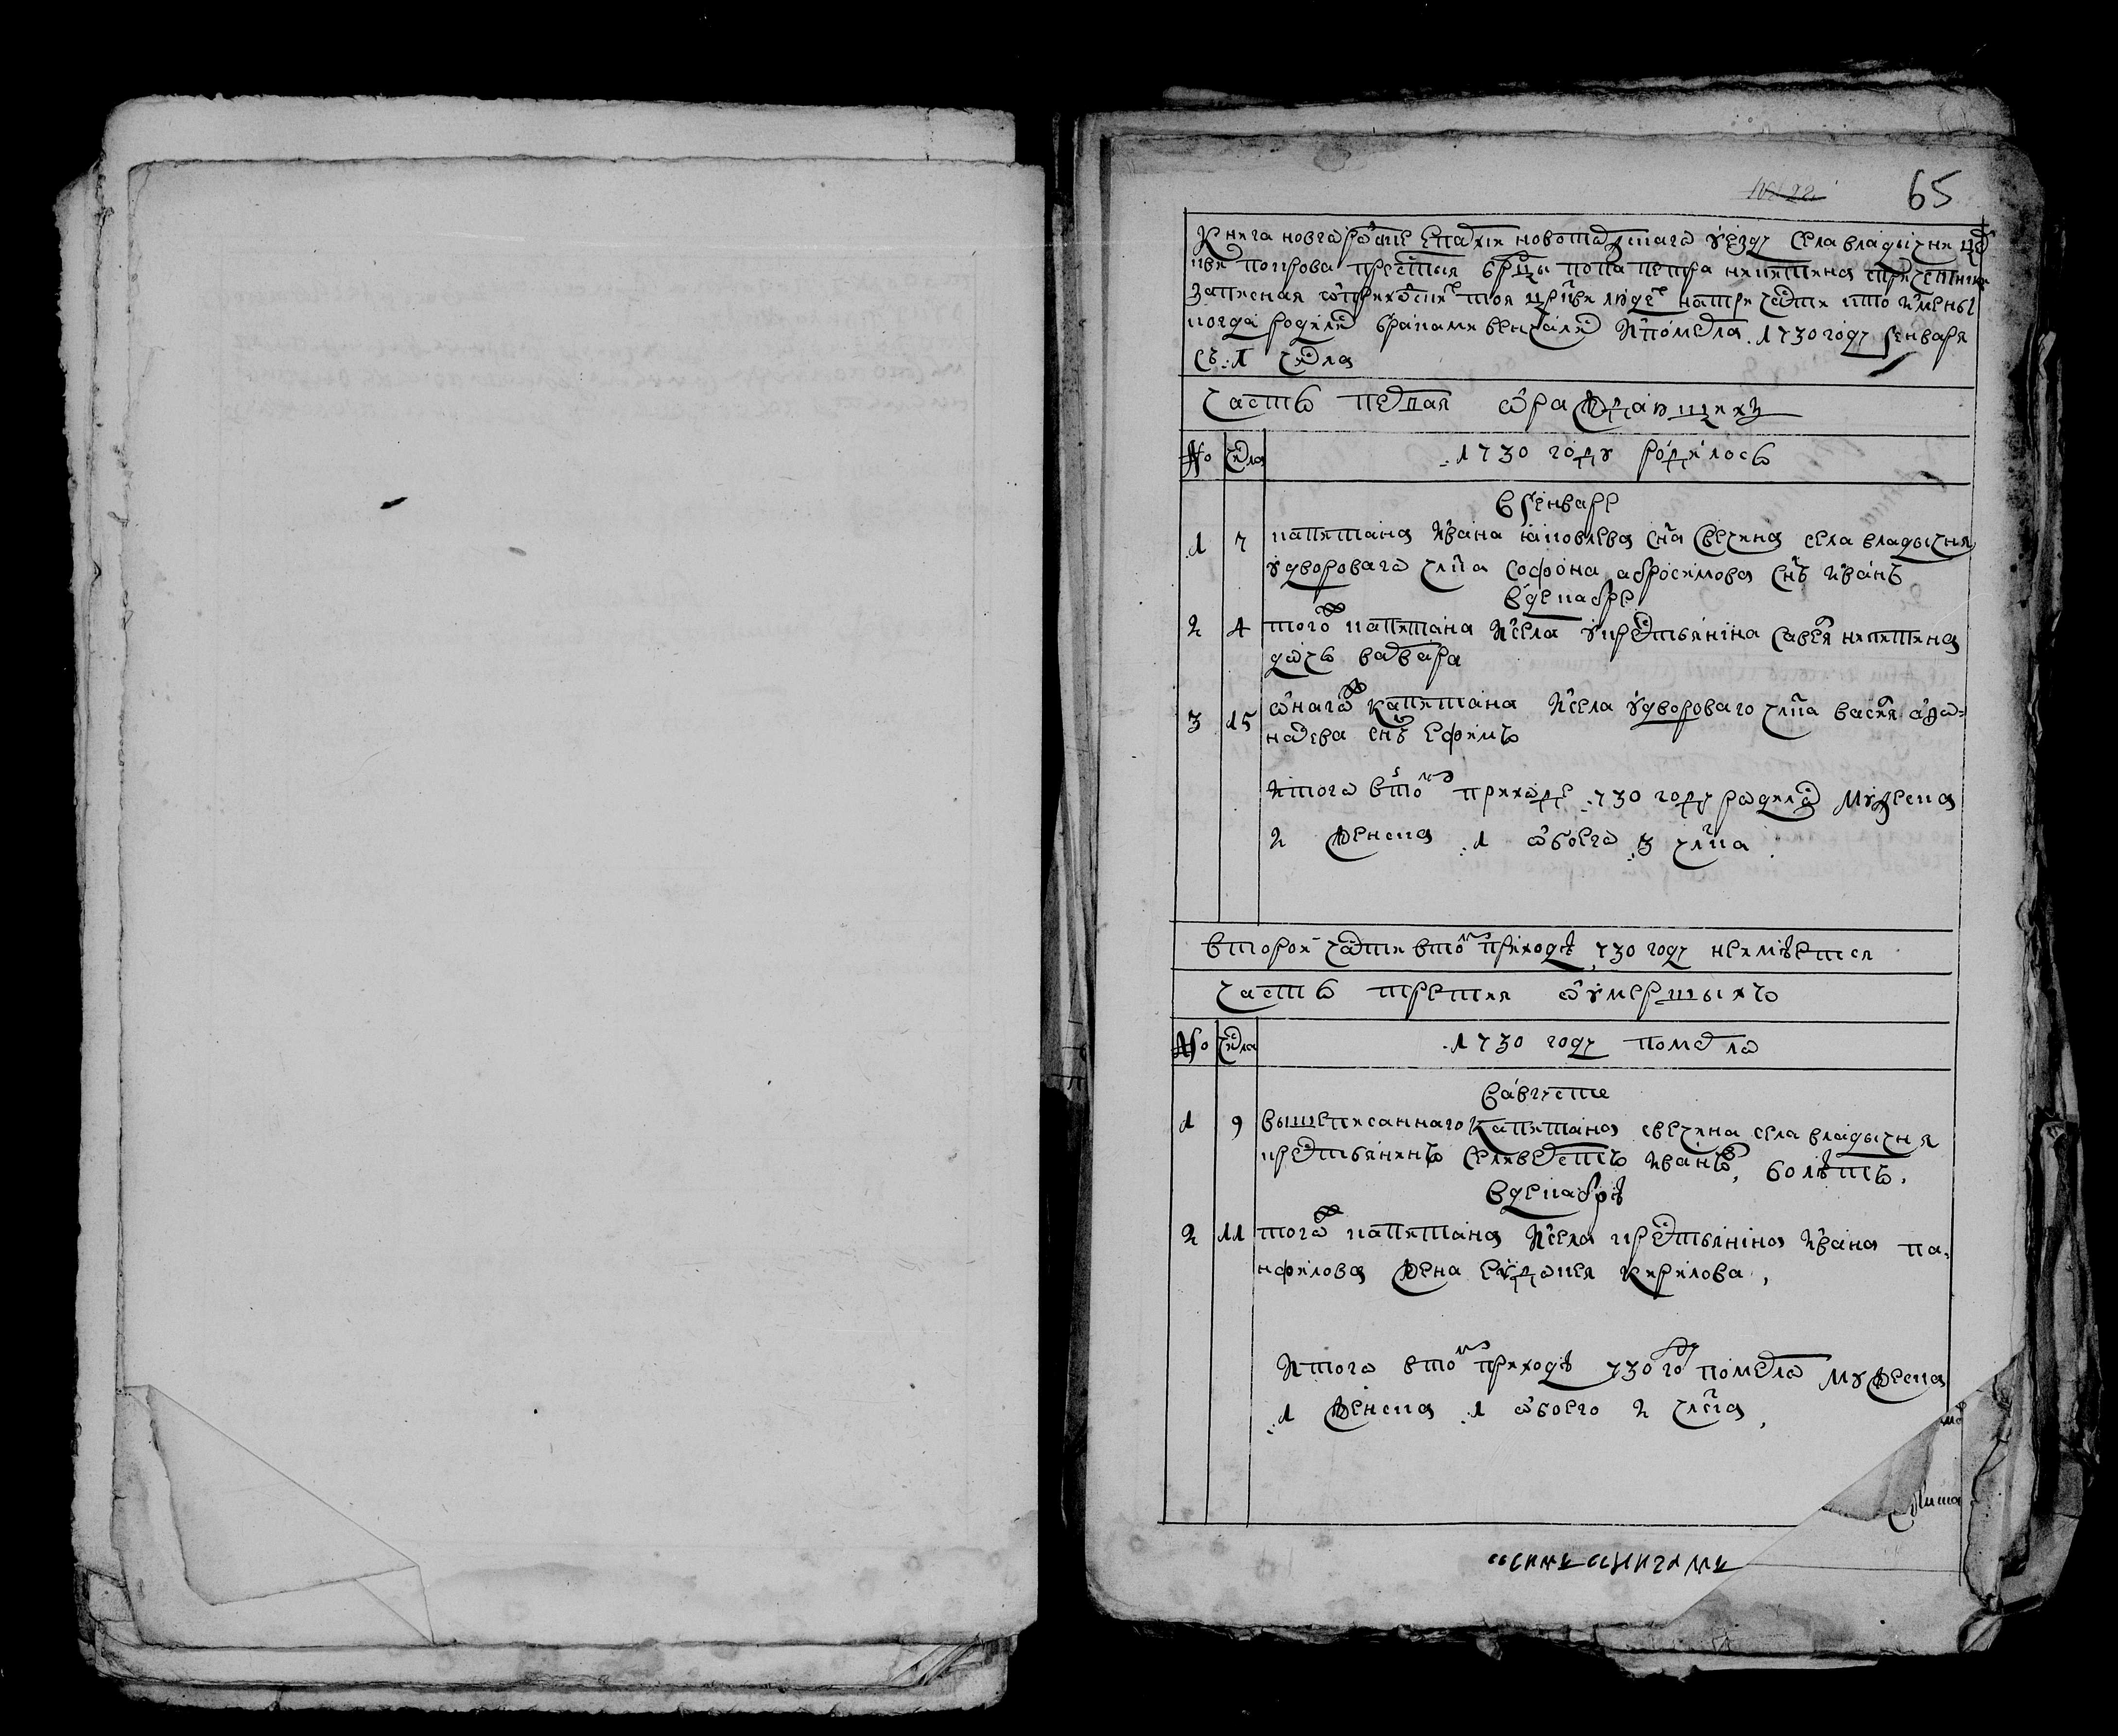 65
Книга новгороцкие Епархии новоторжскаго уезду села владычни цер
кви покрова престыя бцы попа петра никитина с причетники
записная о приходских тоя цркви людех на три части кто имены
когда родились браками венчались и померли 1730 году генваря
съ 1 числа
часть первая о раждающихъ
№ числа 1730 году родилось
в генваре
1 7 капитана Ивана Яковлева сна Свечина села владычня
у двороваго члка Софона абросимова снъ Иванъ
в декабре
2 4 того ж капитана и села у крестьянина савелья никитина
дочь варвара
3 15 онаго ж капитана и села у двороваго члка василья афо-
насева снъ Ефимъ
Итого в том приходе 730 году родилось Мужеска
2 женска 1 обоего 3 члка
второй части в том приходѣ 730 году не имѣется
часть третия о умершихъ
№ числа 1730 году померло
в августе
1 9 вышеписаннаго капитана свечина села владычня
крестьянинъ Селиверстъ Ивановъ 60 лѣтъ
в декабрѣ
2 11 того ж капитана и села крестьянина Ивана па-
нфилова жена Евдокея Кирилова
Итого в том приходѣ 730 году померло Мужеска
1 женска 1 обоего 2 члка